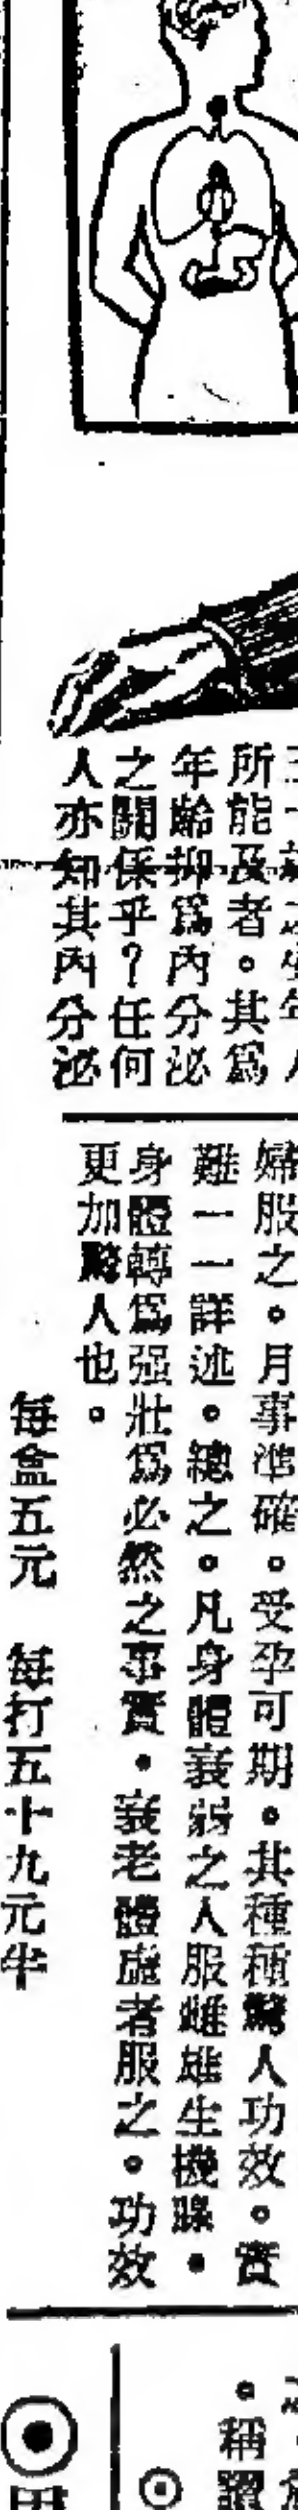 所能及者。其爲
年齡抑爲內分泌
之關係乎？任何
人亦知其內分泌
婦服之。月事準確。受孕可期。其種種驚人功效。實
難一一詳述。總之。凡身體衰弱之人服雌雄生機腺。
身體轉爲强壯爲必然之事實。衰老體虛者服之。功效
更加驚人也。
每盒五元　每打五十九元半